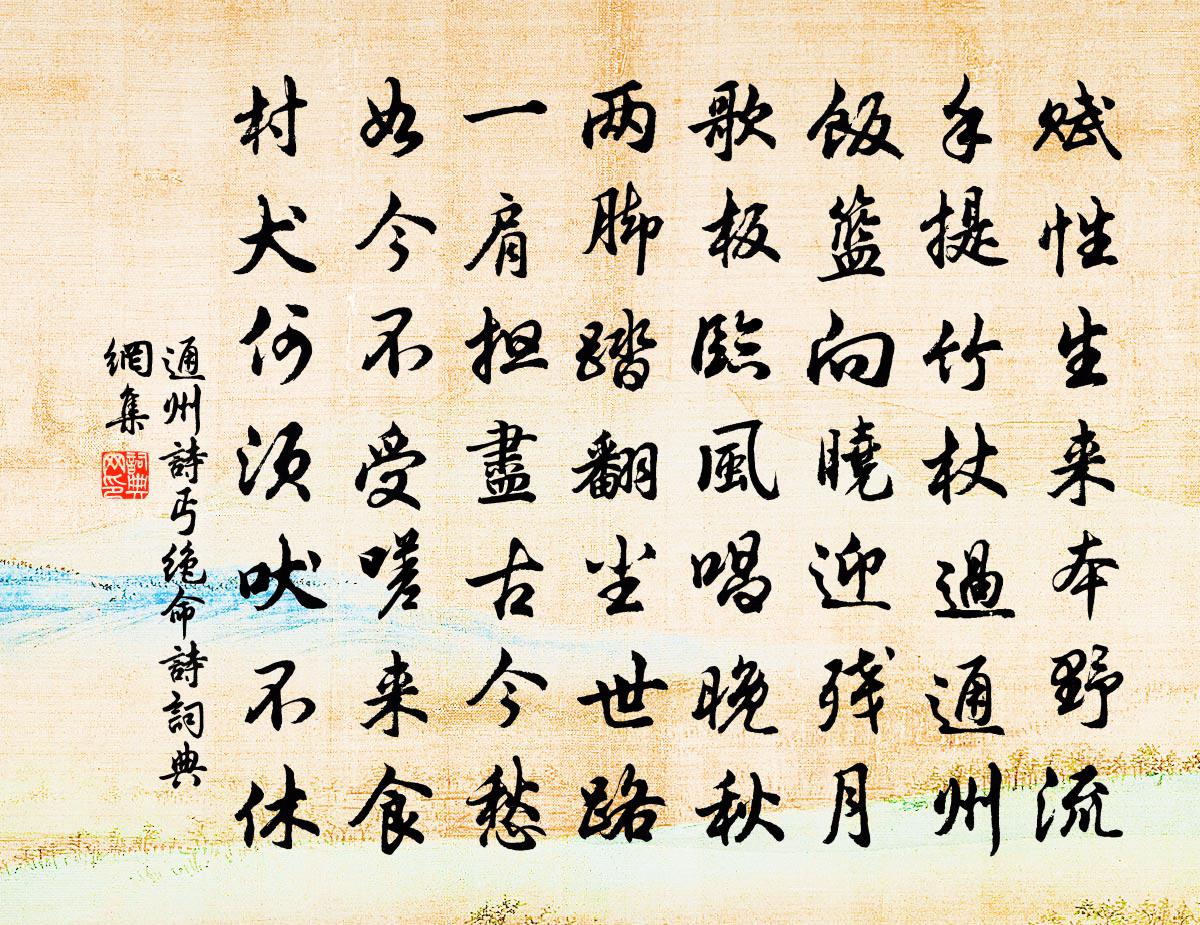 赋性生来本野流
手提竹杖過通州
飯籃向曉迎残月
歌板臨風唱晚秋
两脚踏翻尘世路
一肩担盡古今愁
如今不受嗟来食
村犬何须吠不休
通州詩丐绝命詩詞典
網集
詞典
网印